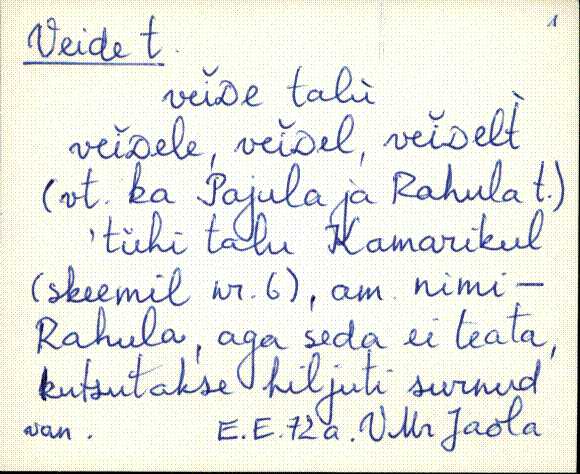 1
Veide t.
veĭDe talù
veĭDele, veĭDel, veĭDelt̀
(vt. ka Pajula ja Rahula t.)
'tühi talu Kamarikul
(skeemil nr. 6), am. nimi –
Rahula, aga seda ei teata,
kutsutakse hiljuti surnud
van. E.E. 72 a. VMr Jaola